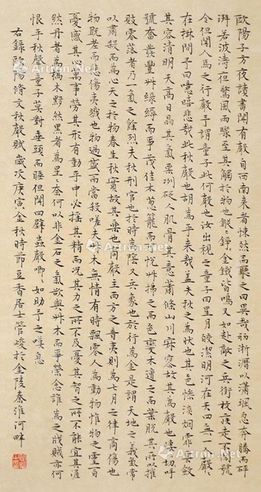 歐陽子方夜讀書聞有聲自西南來者悚然而聽之曰異哉初淅瀝以瀟颯忽奔騰而砰
湃若波濤夜驚風雨驟至其觸於物也鏦鏦錚錚金鐵皆鳴又如赴敵之兵銜枚疾走不聞號
令但聞人馬之行聲予謂童子此何聲也汝出視之童子曰星月皎潔明河在天四無人聲聲
在樹間予曰噫嘻悲哉此秋聲也胡為乎來哉蓋夫秋之為狀也其色慘淡煙霏雲斂
其容清明天高日晶其氣栗冽砭人肌骨其意蕭條山川寂寥故其為聲也淒淒切切呼
號奮發豐草綠縟而爭茂佳木蔥籠而可悅草拂之而色變木遭之而葉脫其所以摧
敗零落者乃一氣之餘烈夫秋刑官也於時為陰又兵象也於行為金是謂天地之義氣常
以肅殺而為心天之於物春生秋實故其在樂也商聲主西方之音夷則為七月之律商傷也
物既老而悲傷夷戮也物過盛而當殺嗟夫草木無情有時飄零人為動物惟物之靈百
憂感其心萬事勞其形有動乎中必搖其精而況思其力之所不及憂其智之所不能宜其渥
然丹者為槁木黟然黑者為星星奈何以非金石之質欲與草木而爭榮念誰為之戕賊亦何
恨乎秋聲童子莫對垂頭而睡但聞四壁蟲聲唧唧如助予之嘆息
右錄歐陽脩文秋聲賦歲次庚寅金秋時節豆香居士管峻於金陵秦淮河畔